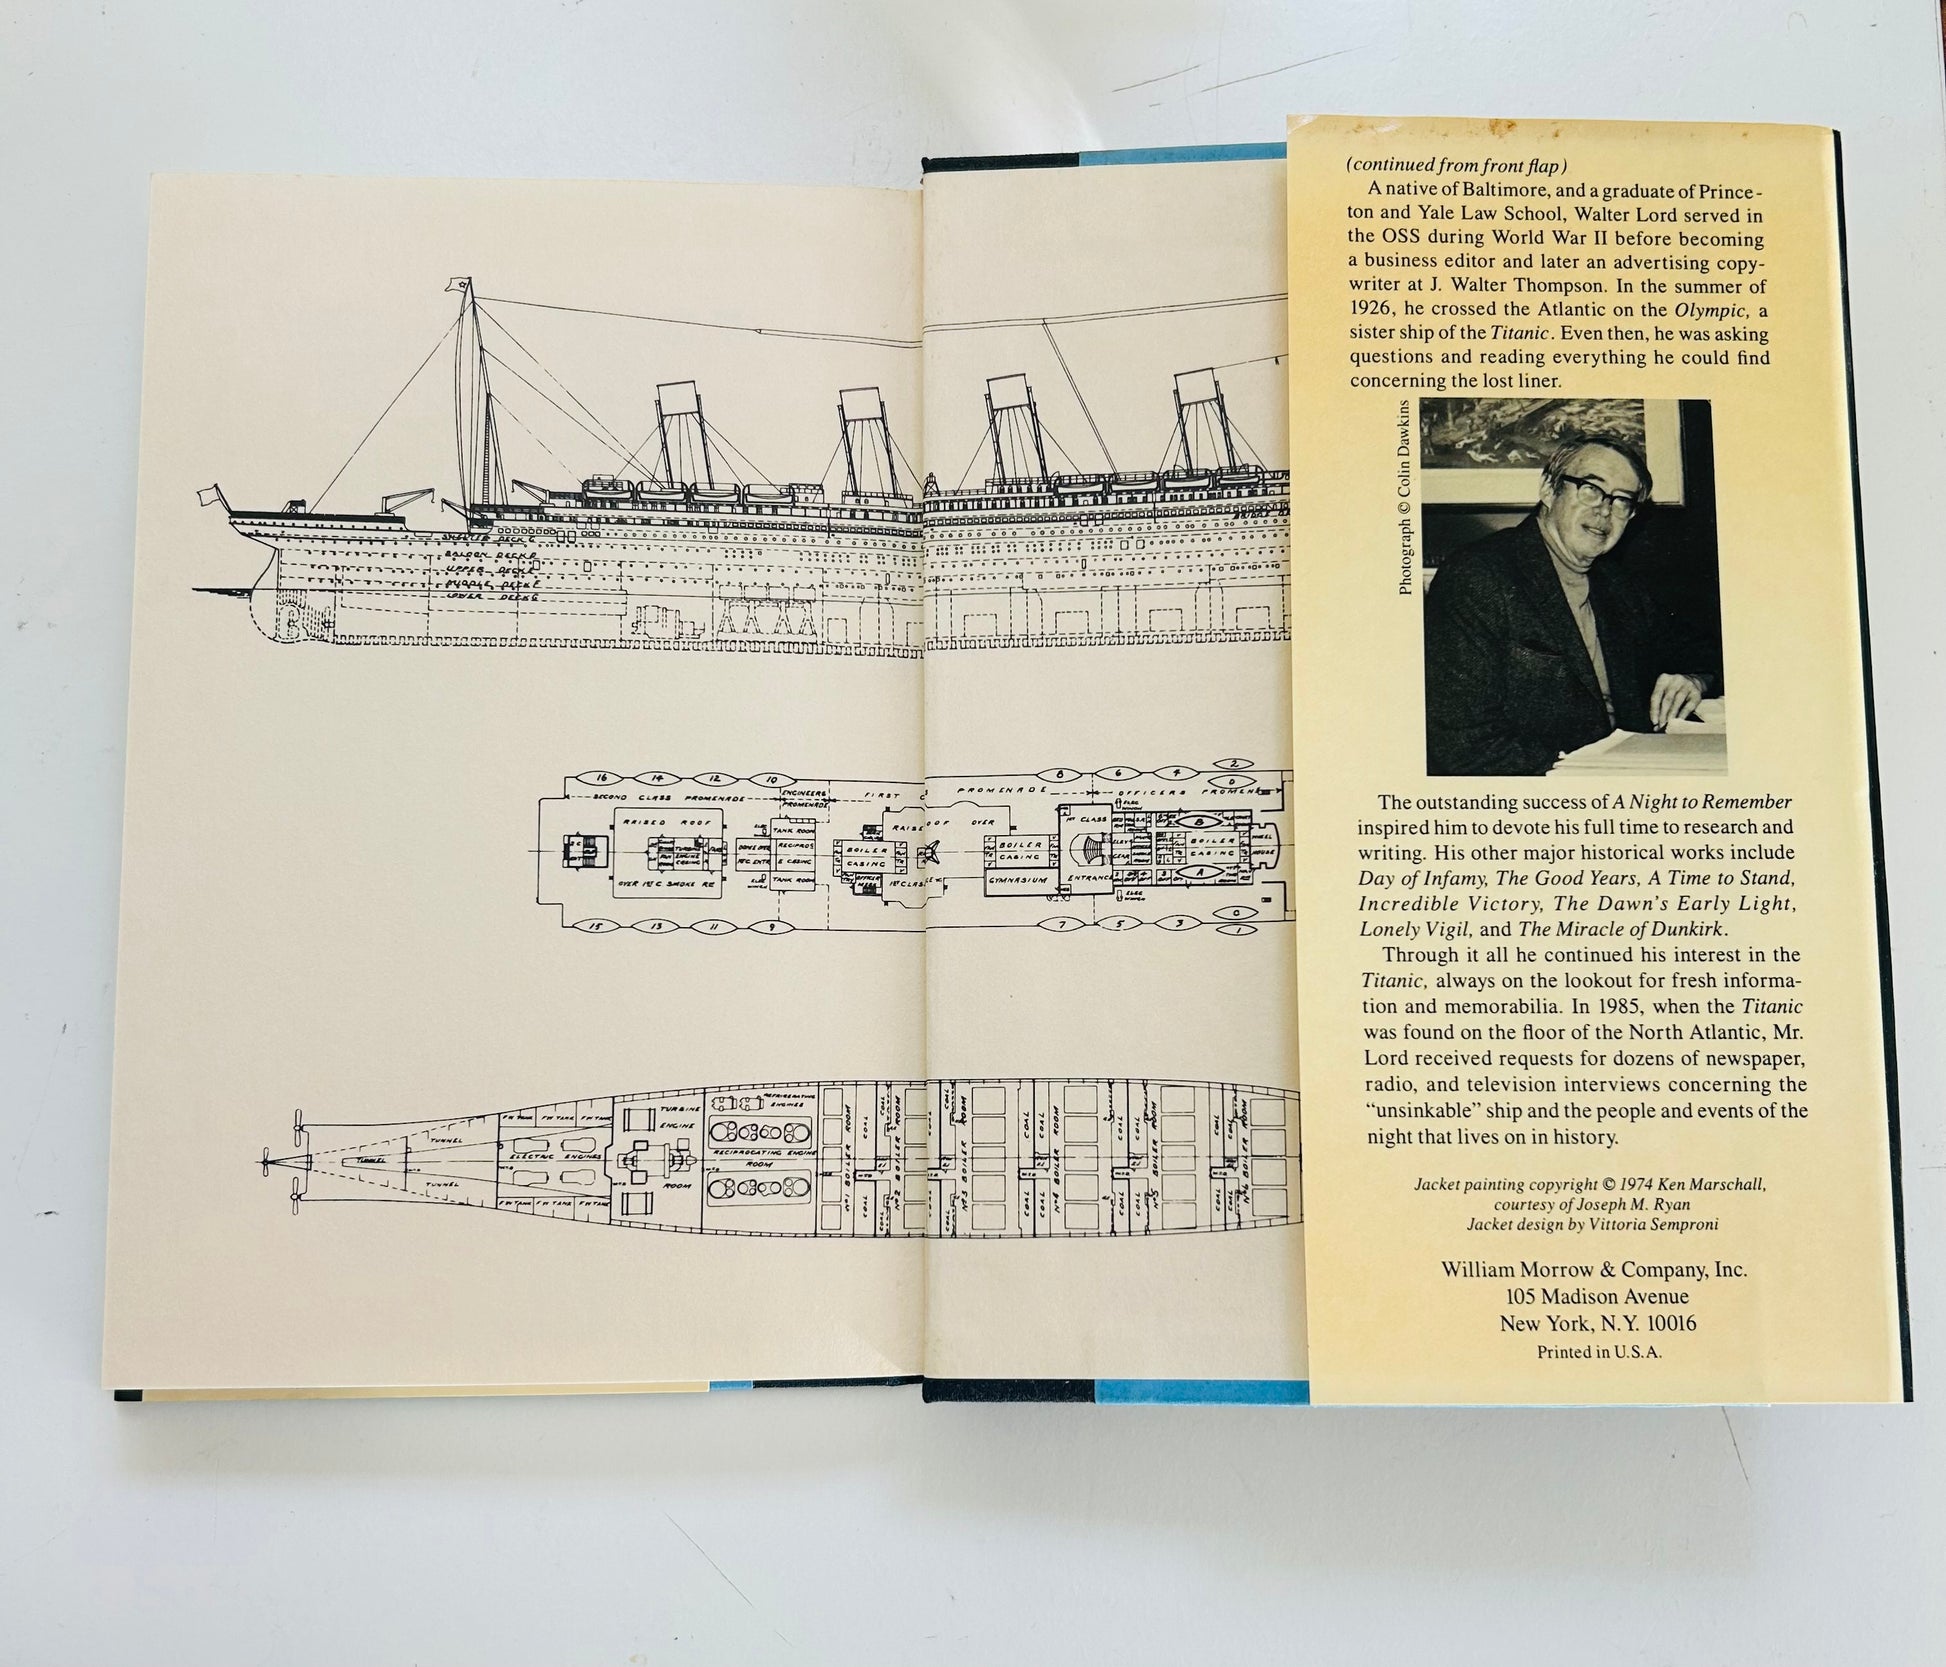 SHELTER DECK C
SALOON DECK D
UPPER DECK E
MIDDLE DECK F
LOWER DECK G
16 14 12 10
SECOND CLASS PROMENADE
ENGINEERS
PROMENADE
FIRST C
RAISED ROOF
TANK ROOM
RAISE
TURBINE
ENGINE
CASING
DOME OVER
REC. ENTR
RECIPROS
E CASING
BOILER
CASING
OVER 1ST C SMOKE RE
ELEC
WINCH
TANK ROOM
OFFICER
MESS
1ST CLAS
15 13 11 9
8 6 4 2
D
PROMENADE
OFFICERS PROMEN
ELEC
WINCH
OOF OVER
1ST CLASS
B
BOILER
CASING
ELEV
GEAR
BOILER
CASING
WHEEL
HOUSE
GYMNASIUM
ENTRANCE
A
ELEC
WINCH
C
7 5 3 1
FW TANK FW TANK FW TANK
TURBINE
ENGINE
ROOM
REFRIGERATING
ENGINES
TUNNEL
TUNNEL
TUNNEL
ELECTRIC ENGINES
RECIPROCATING ENGINE
ROOM
FW TANK FW TANK FW TANK
Nº1 BOILER ROOM
COAL
COAL
COAL
COAL
Nº2 BOILER ROOM
COAL
COAL
Nº3 BOILER ROOM
COAL
COAL
COAL
COAL
Nº4 BOILER ROOM
COAL
COAL
COAL
COAL
Nº5 BOILER ROOM
COAL
COAL
COAL
COAL
Nº6 BOILER ROOM
(continued from front flap)
A native of Baltimore, and a graduate of Prince-
ton and Yale Law School, Walter Lord served in
the OSS during World War II before becoming
a business editor and later an advertising copy-
writer at J. Walter Thompson. In the summer of
1926, he crossed the Atlantic on the Olympic, a
sister ship of the Titanic. Even then, he was asking
questions and reading everything he could find
concerning the lost liner.
Photograph © Colin Dawkins
The outstanding success of A Night to Remember
inspired him to devote his full time to research and
writing. His other major historical works include
Day of Infamy, The Good Years, A Time to Stand,
Incredible Victory, The Dawn's Early Light,
Lonely Vigil, and The Miracle of Dunkirk.
Through it all he continued his interest in the
Titanic, always on the lookout for fresh informa-
tion and memorabilia. In 1985, when the Titanic
was found on the floor of the North Atlantic, Mr.
Lord received requests for dozens of newspaper,
radio, and television interviews concerning the
“unsinkable” ship and the people and events of the
night that lives on in history.
Jacket painting copyright © 1974 Ken Marschall,
courtesy of Joseph M. Ryan
Jacket design by Vittoria Semproni
William Morrow & Company, Inc.
105 Madison Avenue
New York, N.Y. 10016
Printed in U.S.A.